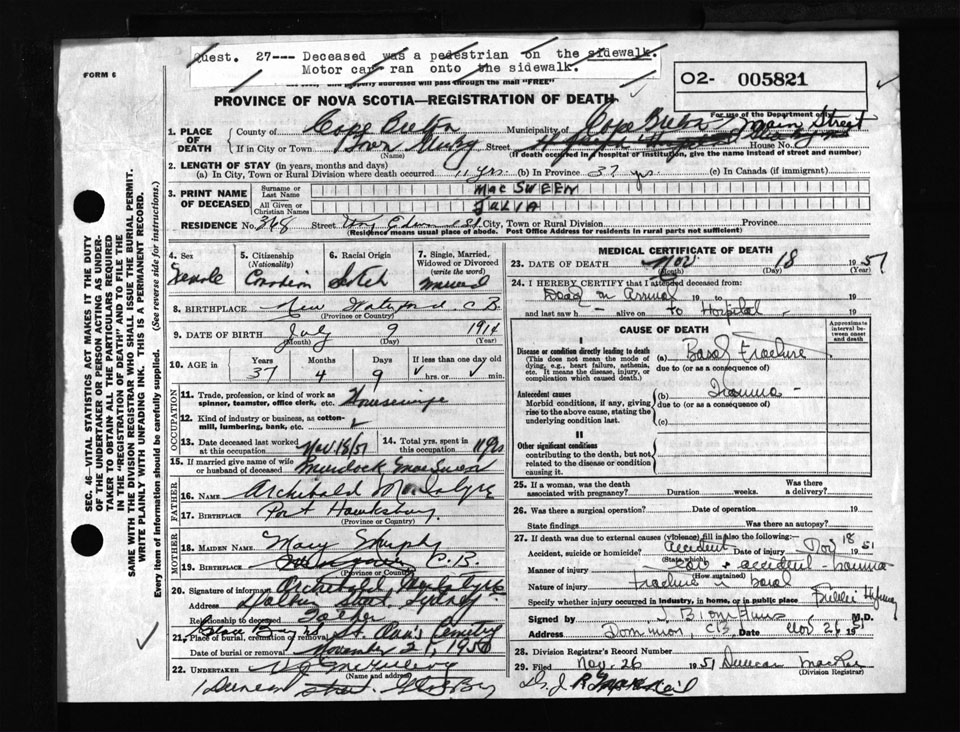 Quest. 27--- Deceased was a pedestrian on the sidewalk.
Motor car ran onto the sidewalk.
FORM 6
properly addressed will pass through the mail "FREE"
O2- 005821
For use of the Department only
PROVINCE OF NOVA SCOTIA—REGISTRATION OF DEATH
1. PLACE OF DEATH
County of Cape Breton Municipality of Cape Breton Main Street
If in City or Town (Name) Street House No.
(If death occurred in a hospital or institution, give the name instead of street and number)
2. LENGTH OF STAY (in years, months and days)
(a) In City, Town or Rural Division where death occurred 11 yrs. (b) In Province 37 yrs. (c) In Canada (if immigrant)
3. PRINT NAME OF DECEASED
Surname or Last Name MacSWEEN
All Given or Christian Names JULIA
RESIDENCE No. 368 Street City, Town or Rural Division Province
(Residence means usual place of abode. Post Office Address for residents in rural parts not sufficient)
4. Sex Female
5. Citizenship (Nationality) Canadian
6. Racial Origin Scotch
7. Single, Married, Widowed or Divorced (write the word) Married
8. BIRTHPLACE New Waterford C.B.
(Province or Country)
9. DATE OF BIRTH July 9 1914
(Month) (Day) (Year)
10. AGE in Years 37 Months 4 Days 9 If less than one day old hrs. or min.
OCCUPATION
11. Trade, profession, or kind of work as spinner, teamster, office clerk, etc. Housewife
12. Kind of industry or business, as cotton-mill, lumbering, bank, etc.
13. Date deceased last worked at this occupation Nov 18/51
14. Total yrs. spent in this occupation 11 yrs
15. If married give name of wife or husband of deceased Murdock MacSween
FATHER
16. NAME Archibald McIntyre
17. BIRTHPLACE Port Hawksbury
(Province or Country)
MOTHER
18. MAIDEN NAME Mary Murphy
19. BIRTHPLACE C.B.
(Province or Country)
20. Signature of informant Archibald McIntyre
Address Street, Sydney
Relationship to deceased Father
21. Place of burial, cremation or removal Glace Bay St. Ann's Cemetery
Date of burial or removal November 21, 1951
22. UNDERTAKER
(Name and address)
Street. Glace Bay
SEC. 46—VITAL STATISTICS ACT MAKES IT THE DUTY
OF THE UNDERTAKER OR PERSON ACTING AS UNDER-
TAKER TO OBTAIN ALL THE PARTICULARS REQUIRED
IN THE "REGISTRATION OF DEATH" AND TO FILE THE
SAME WITH THE DIVISION REGISTRAR WHO SHALL ISSUE THE BURIAL PERMIT.
WRITE PLAINLY WITH UNFADING INK. THIS IS A PERMANENT RECORD.
Every item of information should be carefully supplied. (See reverse side for instructions.)
MEDICAL CERTIFICATE OF DEATH
23. DATE OF DEATH Nov 18 1951
(Month) (Day) (Year)
24. I HEREBY CERTIFY that I attended deceased from
Dead on Arrival 19 to 19
and last saw h alive on to Hospital 19
CAUSE OF DEATH
Approximate interval between onset and death
I
Disease or condition directly leading to death
(This does not mean the mode of dying, e.g., heart failure, asthenia, etc. It means the disease, injury, or complication which caused death.)
(a) Basal Fracture
due to (or as a consequence of)
Antecedent causes
Morbid conditions, if any, giving rise to the above cause, stating the underlying condition last.
(b) Trauma -
due to (or as a consequence of)
(c)
II
Other significant conditions
contributing to the death, but not related to the disease or condition causing it.
25. If a woman, was the death associated with pregnancy? Duration weeks. Was there a delivery?
26. Was there a surgical operation? Date of operation 19
State findings Was there an autopsy?
27. If death was due to external causes (violence) fill in also the following:—
Accident, suicide or homicide? Accident Date of injury Nov 18 1951
(State which)
Manner of injury Car accident - trauma
(How sustained)
Nature of injury Fracture basal
Specify whether injury occurred in industry, in home, or in public place Public Highway
Signed by M.D.
Address Dominion, C.B. Date Nov 26 1951
28. Division Registrar's Record Number
29. Filed Nov. 26 1951 Duncan MacRae
(Division Registrar)